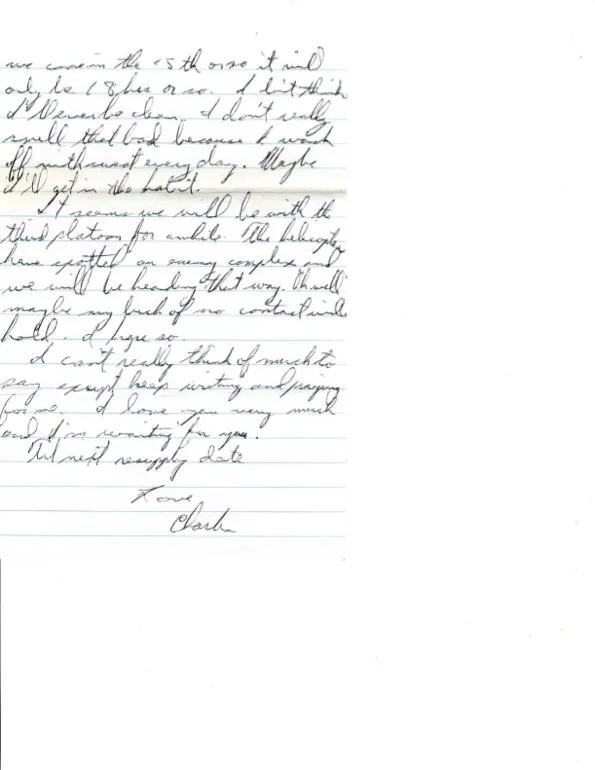 we come in the 15th or so it will
only be 18 hrs or so. I don't think
I'll ever be clean. I don't really
smell that bad because I wash
off with sweat every day. Maybe
I'll get in the habit.
It seems we will be with the
third platoon for awhile. The helicopters
have spotted an enemy complex and
we will be heading that way. Oh well
maybe my luck of no contact will
hold. I hope so.
I can't really think of much to
say except keep writing and praying
for me. I love you very much
and I'm waiting for you.
Til next resupply date
Love